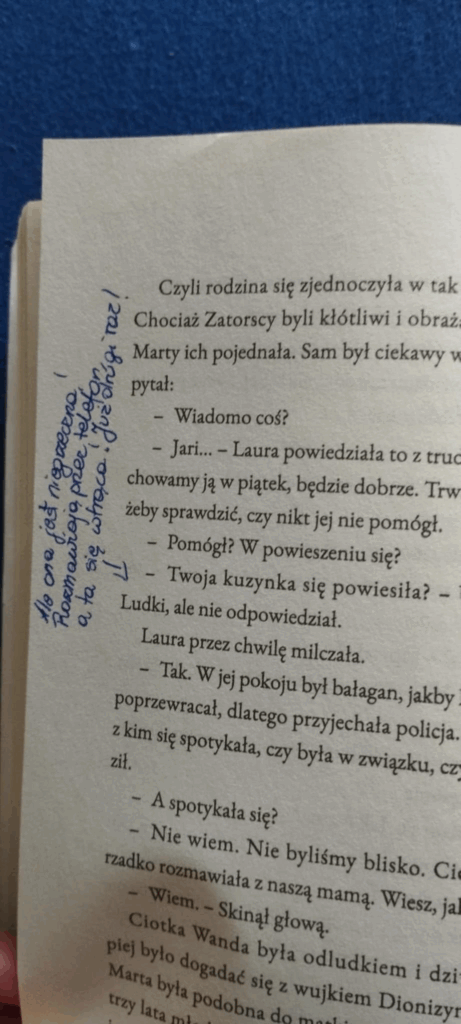 Ale ona jest niegrzeczna!
Rozmawiają przez telefon,
a ta się wtrąca! Już drugi raz!
Czyli rodzina się zjednoczyła w tak
Chociaż Zatorscy byli kłótliwi i obraż
Marty ich pojednała. Sam był ciekawy w
pytał:
– Wiadomo coś?
– Jari... – Laura powiedziała to z truc
chowamy ją w piątek, będzie dobrze. Trw
żeby sprawdzić, czy nikt jej nie pomógł.
– Pomógł? W powieszeniu się?
– Twoja kuzynka się powiesiła? –
Ludki, ale nie odpowiedział.
Laura przez chwilę milczała.
– Tak. W jej pokoju był bałagan, jakby
poprzewracał, dlatego przyjechała policja.
z kim się spotykała, czy była w związku, czy
ził.
– A spotykała się?
– Nie wiem. Nie byliśmy blisko. Cio
rzadko rozmawiała z naszą mamą. Wiesz, jak
– Wiem. – Skinął głową.
Ciotka Wanda była odludkiem i dzi
piej było dogadać się z wujkiem Dionizym
Marta była podobna do matki
trzy lata